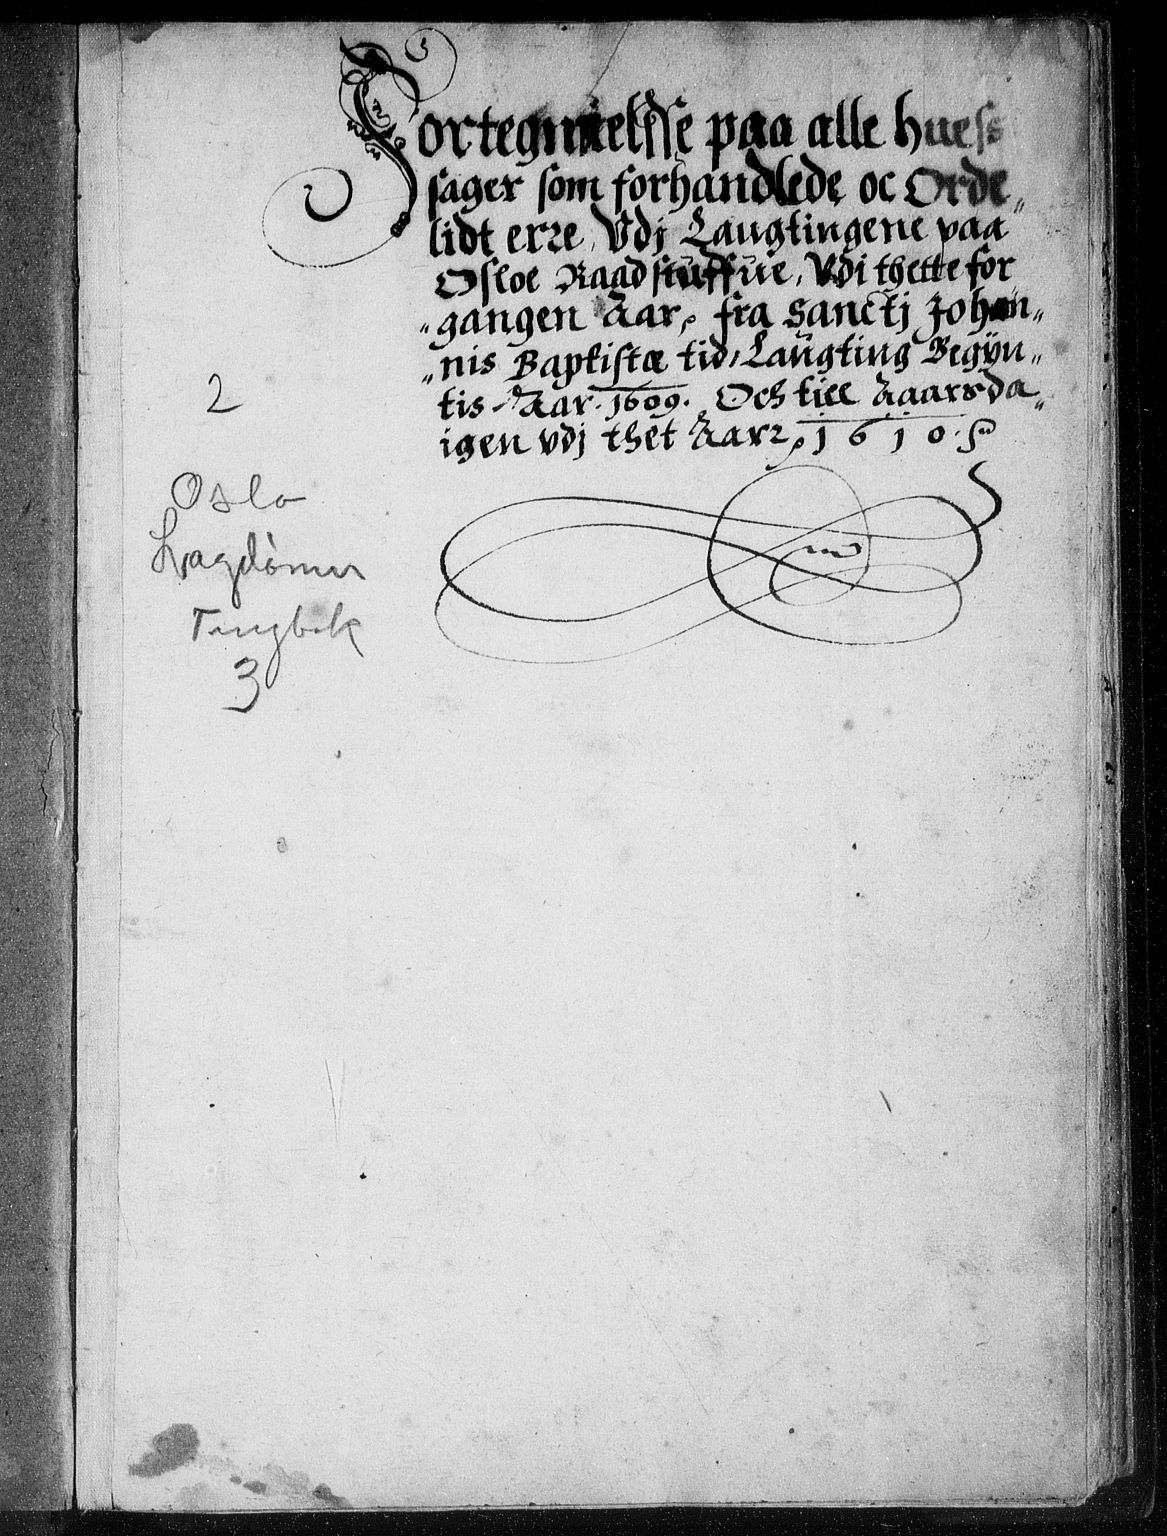 Fortegnnelsse paa alle huess
sager som forhandlede oc Orde„
lidt erre, Vdj Laugtingene paa
Osloe Raadstuffue, Vdi thette for
„gangen Aar, fra Sanctj Johan„
„nis Baptistæ tid, Laugting Begÿn„
tis Aar. 1609. Och till Aarsda„
igen vdj thet Aar, 1610.
2
Oslo
Lagdømme
Tingbok
3